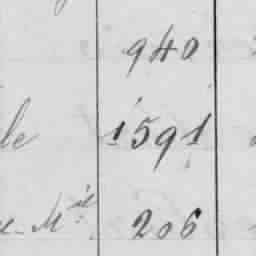 940
le 1591
M^ie 206